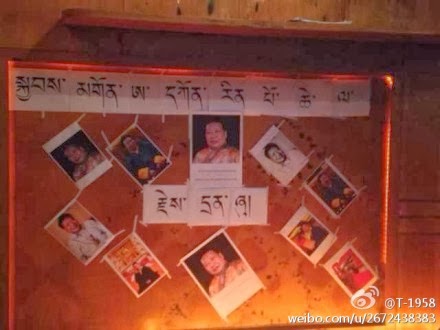 སྐྱབས་ མགོན་ ཨ་ དཀོན་ རིན་ པོ་ ཆེ་ ལ་
རྗེས་ དྲན་ ཞུ།
@T-1958
weibo.com/u/2672438383